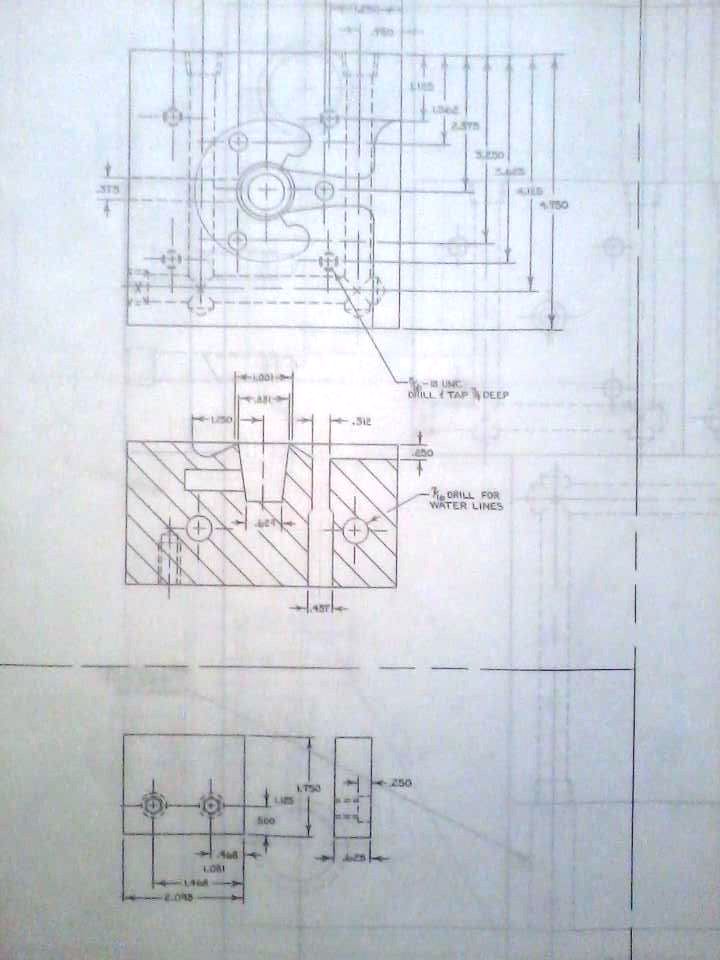 1.250
.750
1.125
1.562
2.375
3.250
3.625
4.125
4.750
.375
DRILL & TAP 3/4 DEEP
1.001
.881
1.250
.312
.250
7/16 DRILL FOR
WATER LINES
.629
.437
1.750
1.125
.500
.250
.468
.625
1.031
1.468
2.093